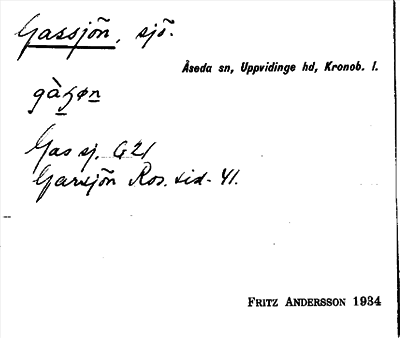 Gassjön, sjö.
Åseda sn, Uppvidinge hd, Kronob. l.
gàʒøn
Gas sj. G21
Garsjön Ros. sid. 41.
FRITZ ANDERSSON 1934